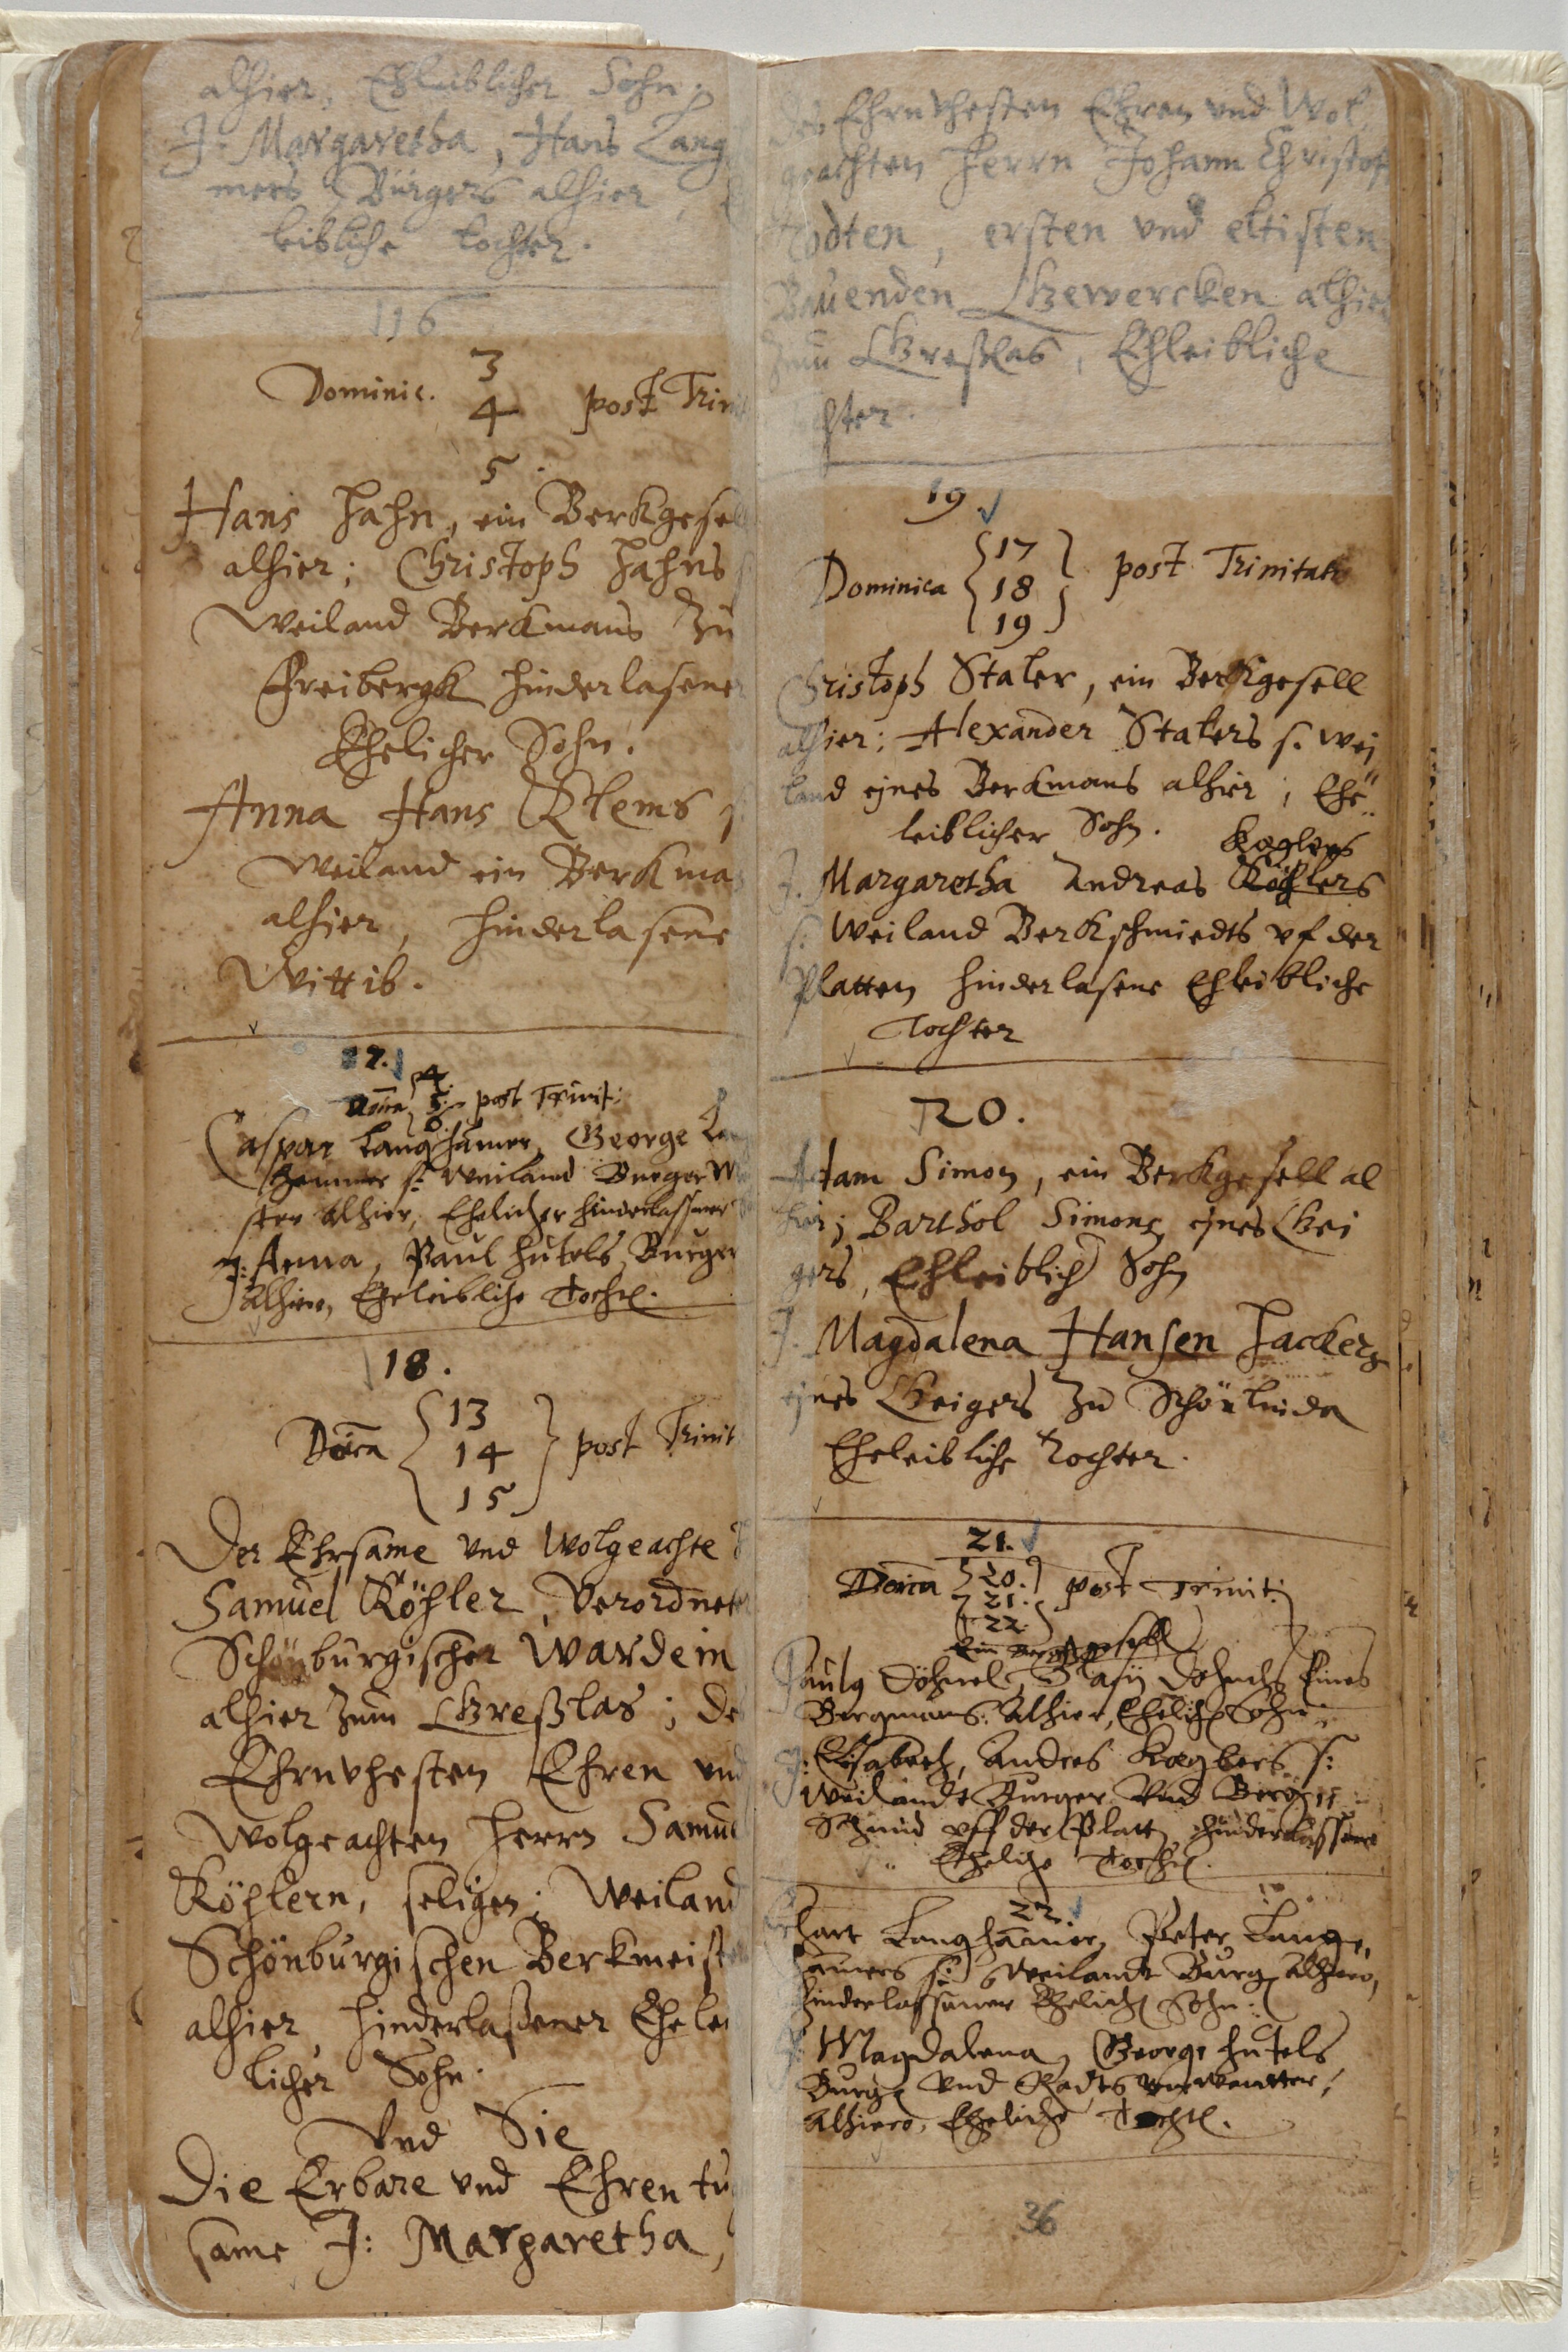 alhier, Ehleiblicher Sohn.
J. Margaretha, Hans Lang
mers Bürgers alhier,
leibliche tochter.
116
3
Dominic. 4 post Trinit
5.
Hans Hahn, ein Berkgesel
alhier; Christoph Hahns
Weiland Berkmans zu
Freibergk hinderlasener
Ehelicher Sohn.
Anna Hans Klems
Weiland ein Berkma
alhier, hinderlasene
Wittib.
17.
4.
Doica 5. post Trinit:
6.
Caspar Langhamer, George Lan
hammer s: Weiland Burger M
ster alhier, Ehelicher hinderlassner
J: Anna, Paul Hutels Burger
Alhiero, Eheleibliche Tocht.
18.
13
Doica 14 post Trinit
15
Der Ehrsame vnd Wolgeachte
Samuel Köhler, Verordnet
Schönburgischer Wardein
alhier zum Greßlas; De
Ehrnvhesten Ehren vnd
Wolgeachten Herrn Samu
Köhlern, seligen; Weiland
Schönburgischen Berkmeist
alhier hinderlaßener Ehele
licher Sohn.
Vnd Sie
Die Erbare vnd Ehren tu
same J: Margaretha,
des Ehrnvhesten Ehren vnd Wol
geachten Herrn Johann Christof
rodten, ersten vnd eltisten
Bauenden Gewercken alhier
zum Greßlas, Ehleibliche
chter.
19
17
Dominica 18 post Trinitatis
19
Christoph Staler, ein Berkgesell
alhier; Alexander Stalers s. wei
land eines Berkmans alhier, Ehe
leiblicher Sohn.
Koglers
J. Margaretha Andreas Köhlers
s. Weiland Berkschmiedts vf der
Platten hinderlasene Ehleibliche
Tochter
20.
Adam Simon, ein Berkgesell al
hier; Barthol Simons eines Gei
gers, Ehleiblich Sohn
J. Magdalena Hansen Hackers
eines Geigers zu Schönlinda
Eheleibliche Tochter.
21.
20.
Doica 21. post Trinit:
22.
Ein Bergkgesell
Paulus Döhnel, Blasij Dohnels Eines
Bergmans Alhier, Ehelich Sohn.
J: Elisabeth, Andres Koglers s:
Weilandt Burger Vnd Berg
Schmid vff der Platt, hinderlassene
Eheliche Tocht.
22.
hart Langhamer, Peter Lange,
hamers s: Weilandt Burg Alhiero,
hinderlassener Ehelich Sohn.
J: Magdalena, George Hutels
Burg Vnd Radts verwantter,
Alhiero, Eheliche Tocht.
36